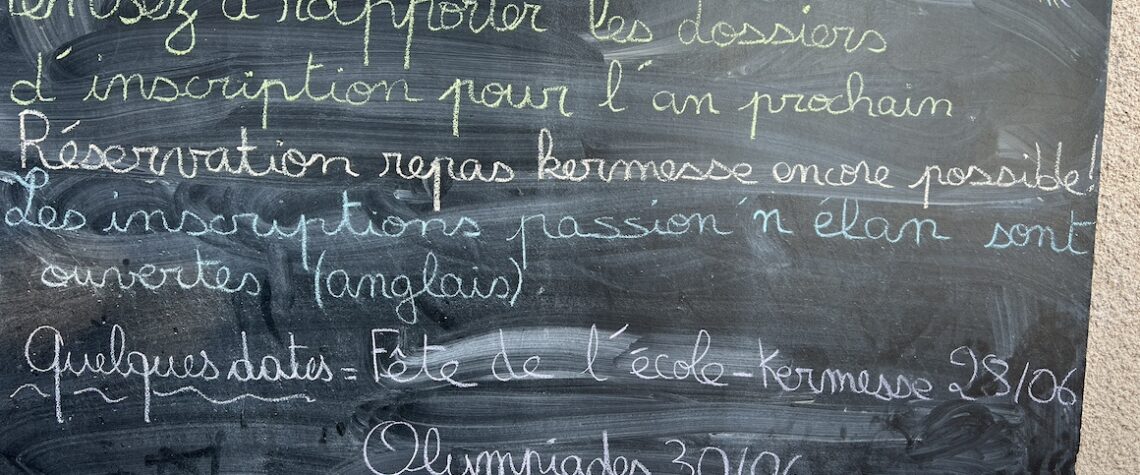 Pensez à rapporter les dossiers
d'inscription pour l'an prochain
Réservation repas kermesse encore possible!
Les inscriptions passion'n élan sont
ouvertes (anglais)
Quelques dates = Fête de l'école - Kermesse 28/06
Olympiades 30/06